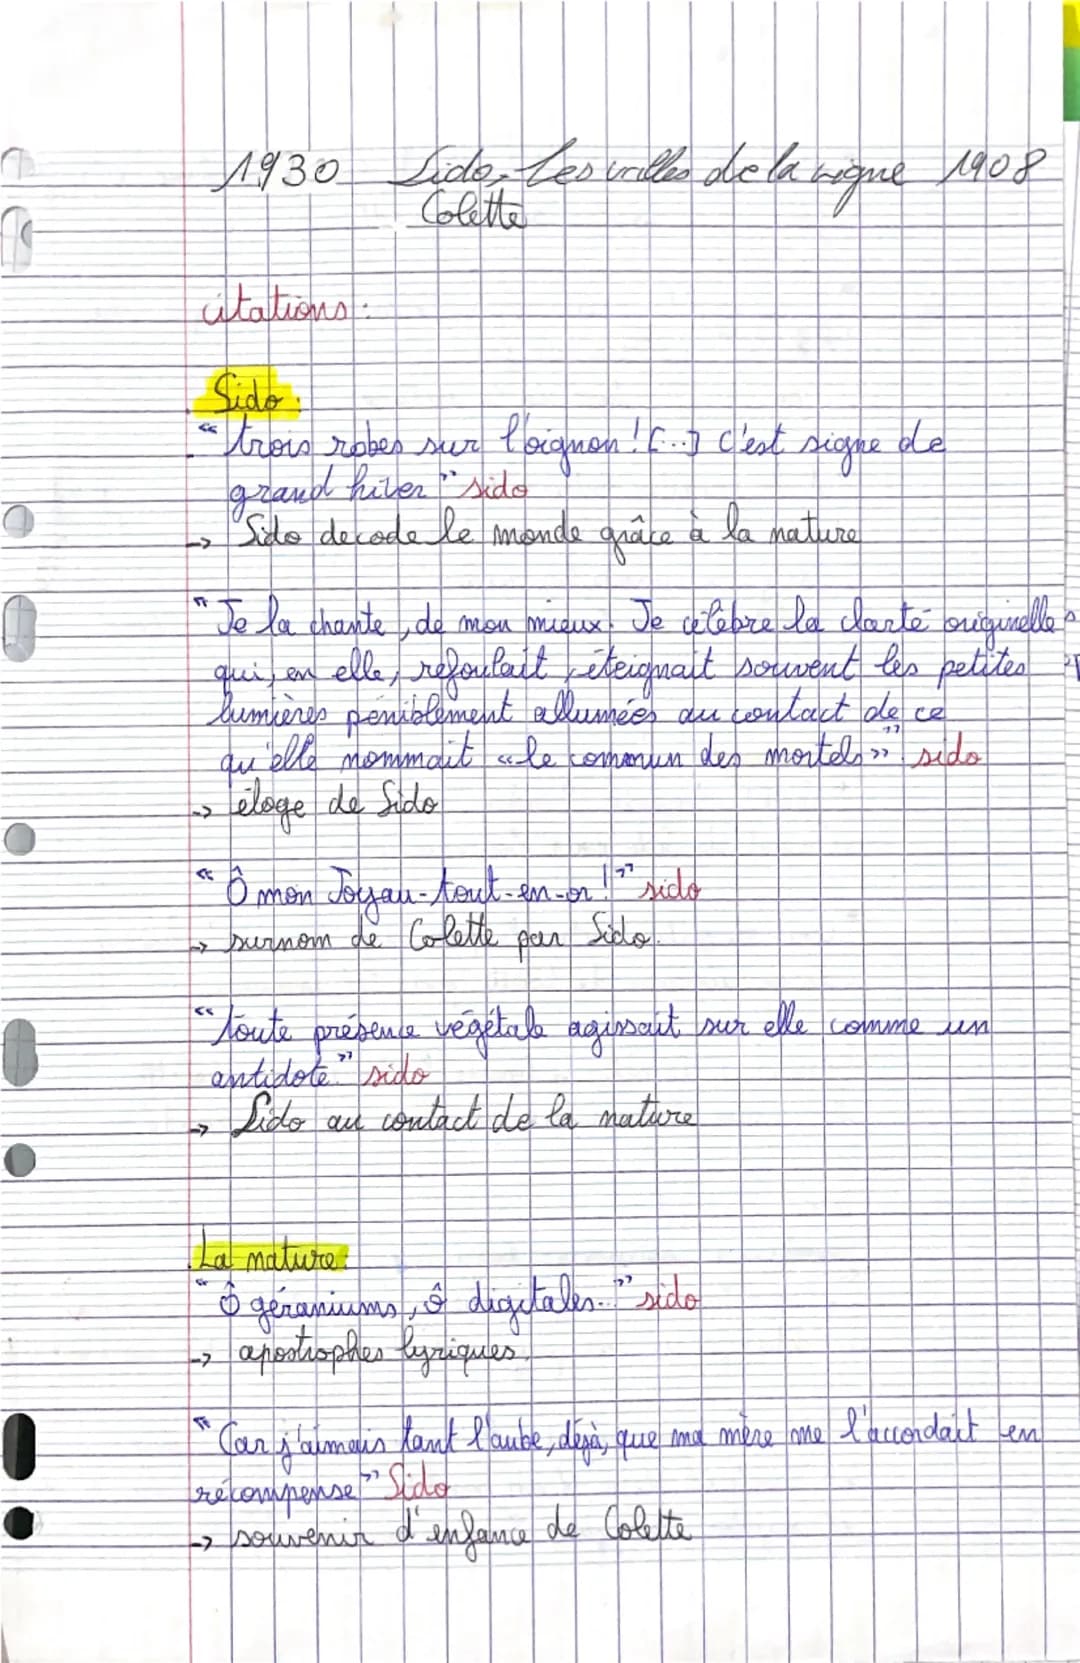 1930 Sido, Les vrilles de la vigne 1908
Colette
citations :
Sido :
"trois robes sur l'oignon ! [...] C'est signe de
grand hiver" sido
-> Sido decode le monde grâce à la nature
"Je la chante, de mon mieux. Je célèbre la clarté originelle
qui, en elle, refoulait, éteignait souvent les petites
lumières péniblement allumées au contact de ce
qu'elle nommait «le commun des mortels»". sido
-> éloge de Sido
"Ô mon Joyau-tout-en-or !" sido
-> surnom de Colette par Sido.
"toute présence végétale agissait sur elle comme un
antidote." sido
-> Sido au contact de la nature
La nature :
"Ô géraniums, ô digitales..." sido
-> apostrophes lyriques.
"Car j'aimais tant l'aube, déjà, que ma mère me l'accordait en
récompense" Sido
-> souvenir d'enfance de Colette